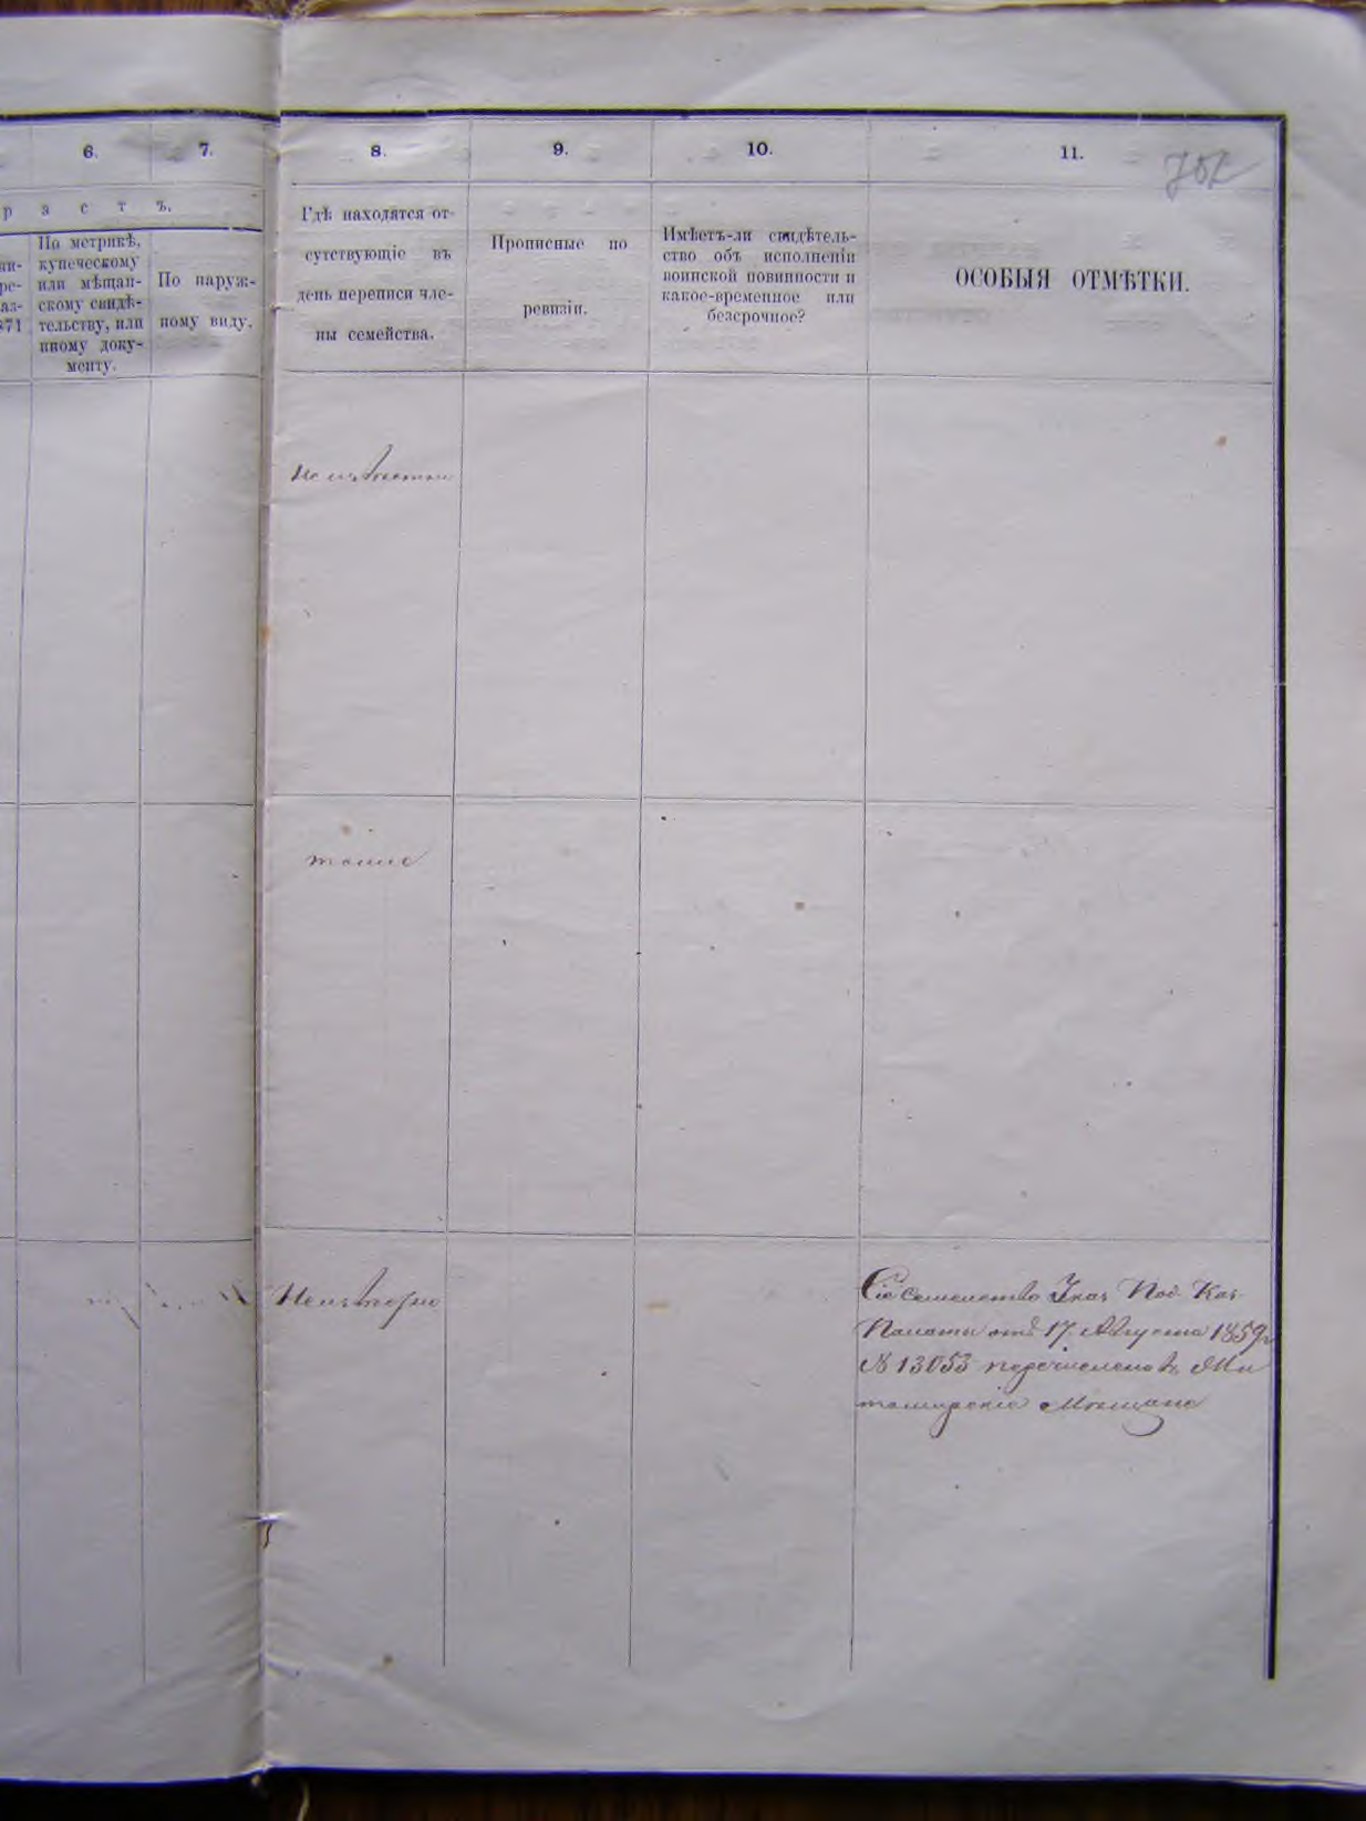 6.
7.
8.
9.
10.
11.
р а с т ъ.
871
По метрикѣ,
купеческому
или мѣщан-
скому свидѣ-
тельству, или
иному доку-
менту.
По наруж-
ному виду.
Гдѣ находятся от-
сутствующіе въ
день переписи чле-
ны семейства.
Прописные по
ревизіи.
Имѣетъ-ли свидѣтель-
ство объ исполненіи
воинской повинности и
какое-временное или
безсрочное?
ОСОБЫЯ ОТМѢТКИ.
Неизвѣстно
тоже
Сіе Семейство Указ Под. Каз.
Палаты отъ 17 Августа 1859 г.
№ 13053 перечислено въ
Мѣщане